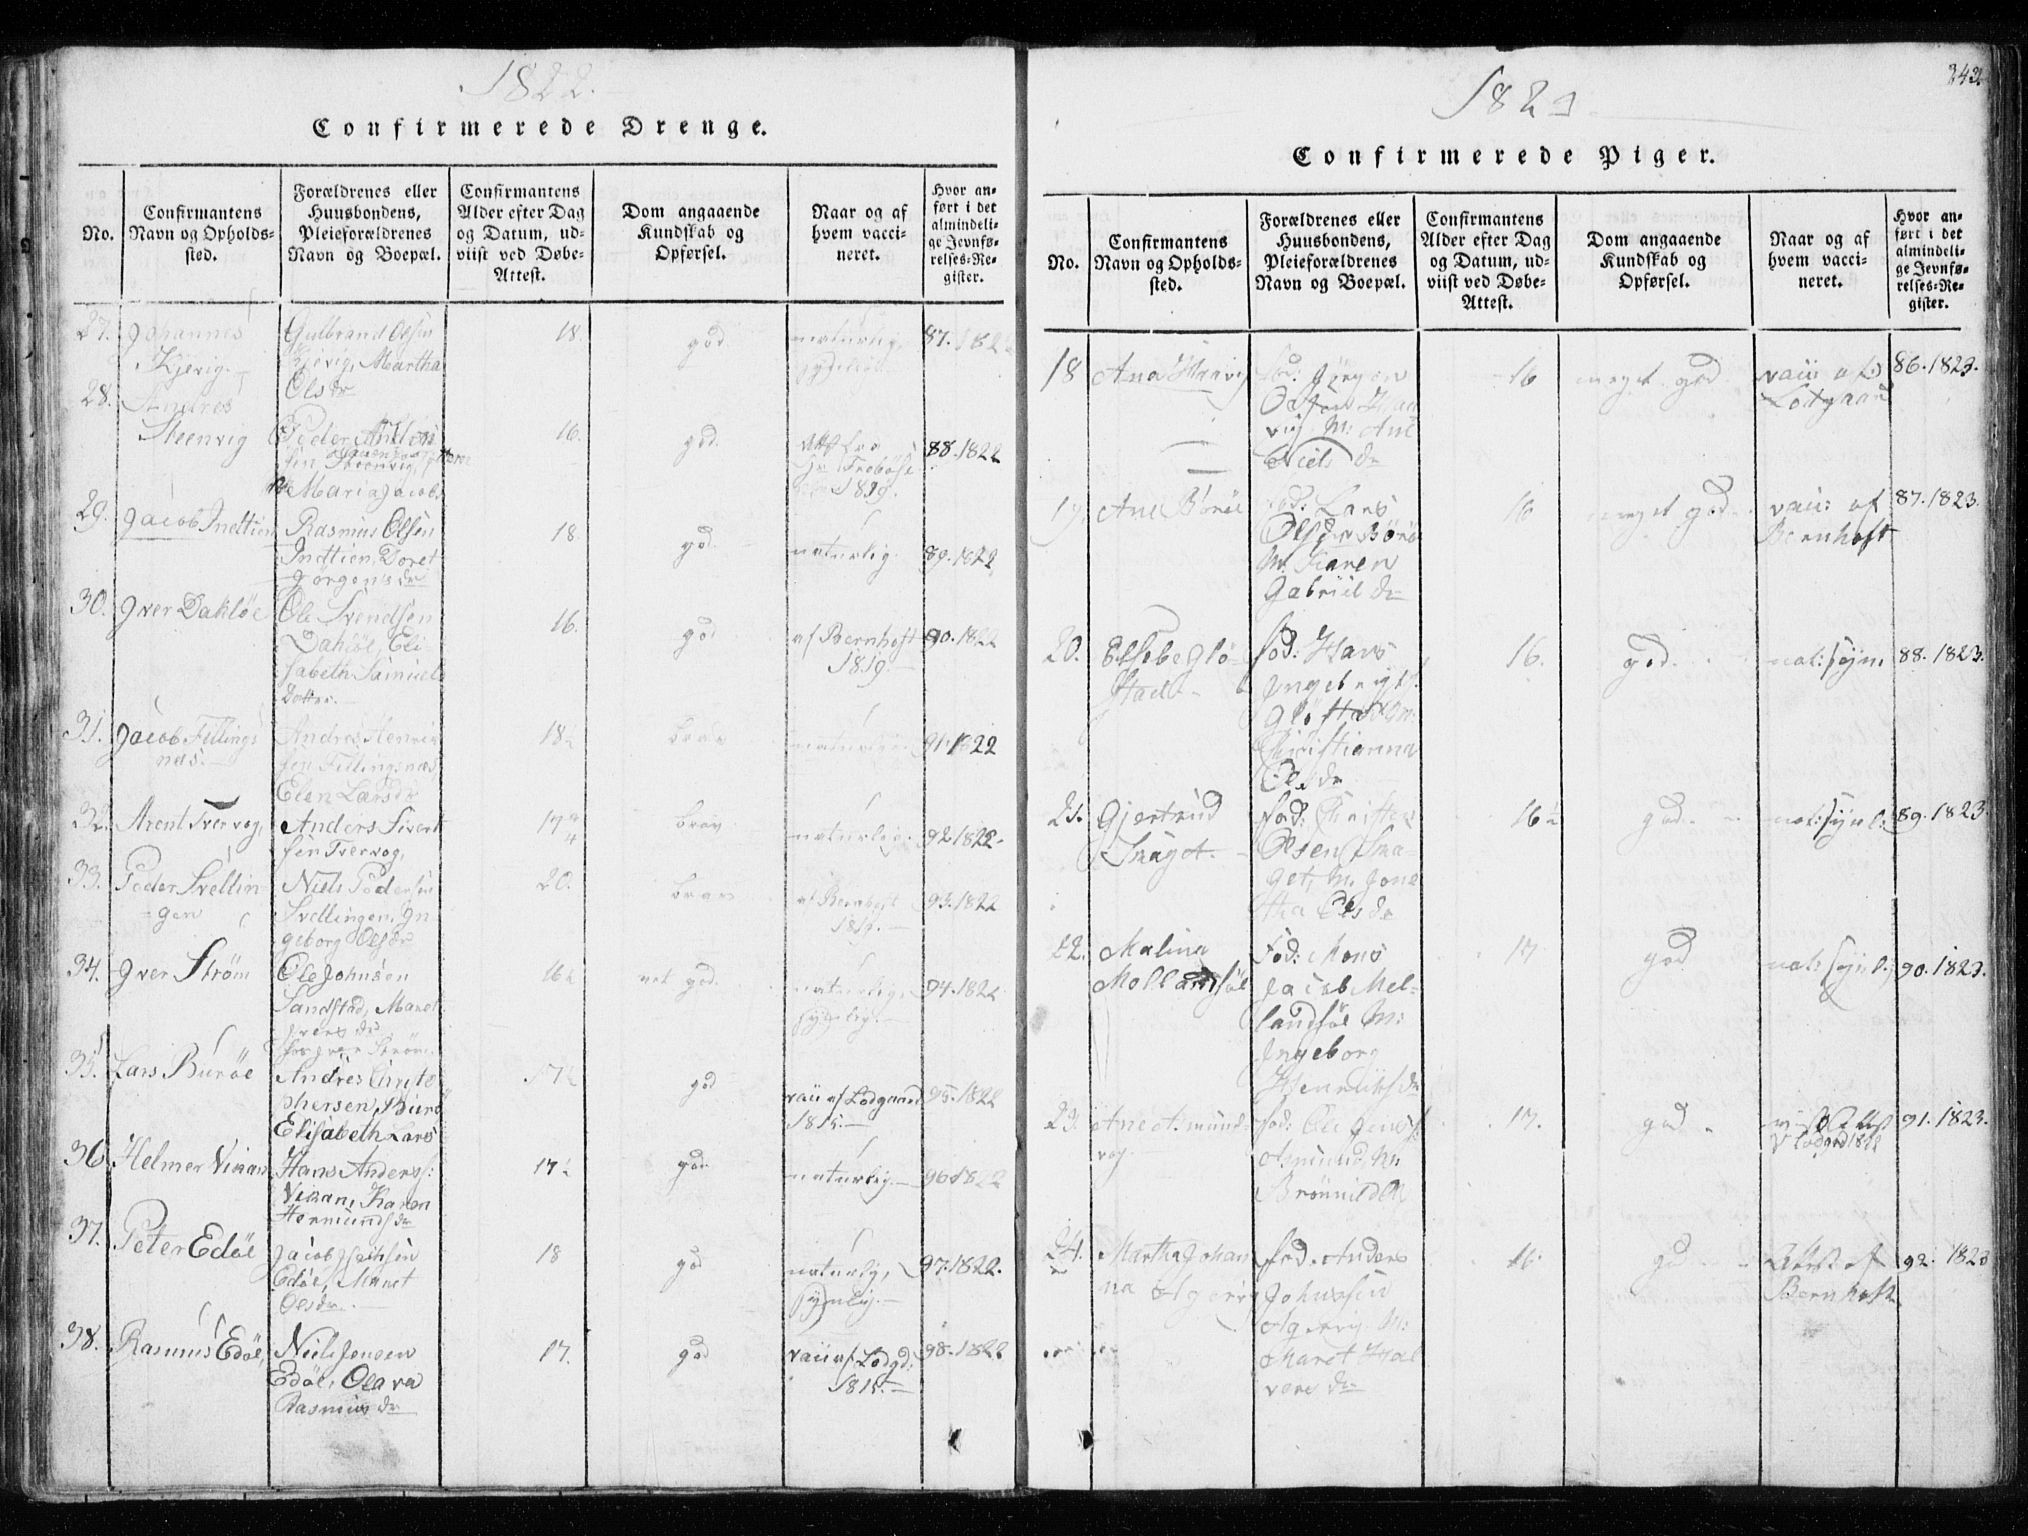 1822.
Confirmerede Drenge.
No.
Confirmantens
Navn og Opholds-
sted.
Forældrenes eller
Huusbondens,
Pleieforældrenes
Navn og Boepæl.
Confirmantens
Alder efter Dag
og Datum, ud-
viist ved Døbe-
Attest.
Dom angaaende
Kundskab og
Opførsel.
Naar og af
hvem vacci-
neret.
Hvor an-
ført i det
almindeli-
ge Jevnfø-
relses-Re-
gister.
27. Johannes
Kjørvig.
Gulbrand Olsen
Martha
Olsdr
18.
god.
naturlig,
87. 182
28. Andres
Steenvig
Peder
Steenvig,
Maria Jacobs
16.
god.
1819.
88. 1822
29. Jacob Inntien
Rasmus Olsen
Inntien, Doret
Jørgens dr
18.
god.
naturlig.
89. 1822
30. Iver Dahlöe
Ole Svendsen
Dahlöe, Eli-
sabeth Samuels
Dotter.
16.
god
af Bernhoft
1819.
90. 1822
31. Jacob Fillings
næs.
Andres Henrik
sen Fillingsnæs
Elen Larsdr
18½
brav
naturlig.
91. 1822
32. Arent Tvervog,
Anders Sivert
sen Tvervog,
17¾
brav
naturlig.
92. 1822.
33. Peder Svellin-
gen
Niels Peder sen
Svellingen, In
geborg Olsdr
20.
brav
af Bernhoft
1819.
93. 1822
34. Iver Ström
Ole Johnsen
Sandstad, Maret
Ivers dr
16½
god.
naturlig,
synlig.
94. 1822
35. Lars Buröe
Andres Christo
phersen, Burö
Elisabeth Lars
17½
god
vacc af Lodgaard
1815.
95. 1822
36 Helmer Vikan
Hans Anders:
Vikan, Karen
Hermunds dr
17½
god
naturlig.
96 1822
37. Peter Edöe
Jacob
Edöe, Maret
Olsdr.
18
god
naturlig,
synlig.
97. 1822.
38. Rasmus Edöe,
Niels Jensen
Edöe, Olava
Rasmus dr
17.
god
vacc af Lodgd:
1815.
98. 1822
343
1823
Confirmerede Piger.
No.
Confirmantens
Navn og Opholds-
sted.
Forældrenes eller
Huusbondens,
Pleieforældrenes
Navn og Boepæl.
Confirmantens
Alder efter Dag
og Datum, ud-
viist ved Døbe-
Attest.
Dom angaaende
Kundskab og
Opførsel.
Naar og af
hvem vacci-
neret.
Hvor an-
ført i det
almindeli-
ge Jevnfø-
relses-Re-
gister.
18 Ana
Fod: Jörgen
M: Ane
Niels dr
16
meget god
vacc: af
Lodgaard
86. 1823.
19. Ane Böröe
Fod: Lars
Olsen Börö
M. Karen
Gabriel dr
16
meget god
vacc: af
Bernhoft
87. 1823.
20. Elsebe Glö-
stad
Fod: Hans
Ingebrigts.
Glöstad M:
Christianna
Olsdr
16.
god.
nat: synl
88. 1823.
21. Gjertrud
Smaget.
Fod: Christen
Olsen Sma-
get, M. Jone
tha Olsdr
16½
god
nat: synl:
89. 1823.
22. Malina
Mollandsöe
Fod: Mons
Jacob Mel-
landsöe M:
Ingeborg
Henriks dr
17
god
nat: synl.
90. 1823.
23. Ane Asmund-
vog.
Fod: Ole Jens:
Asmund, M:
Brönnild
17.
god
91. 1823.
24. Martha Johan
na
Fod: Anders
Johnsen
M:
Maret Hal
vors dr
16.
god
Attest af
Bernhoft
92. 1823